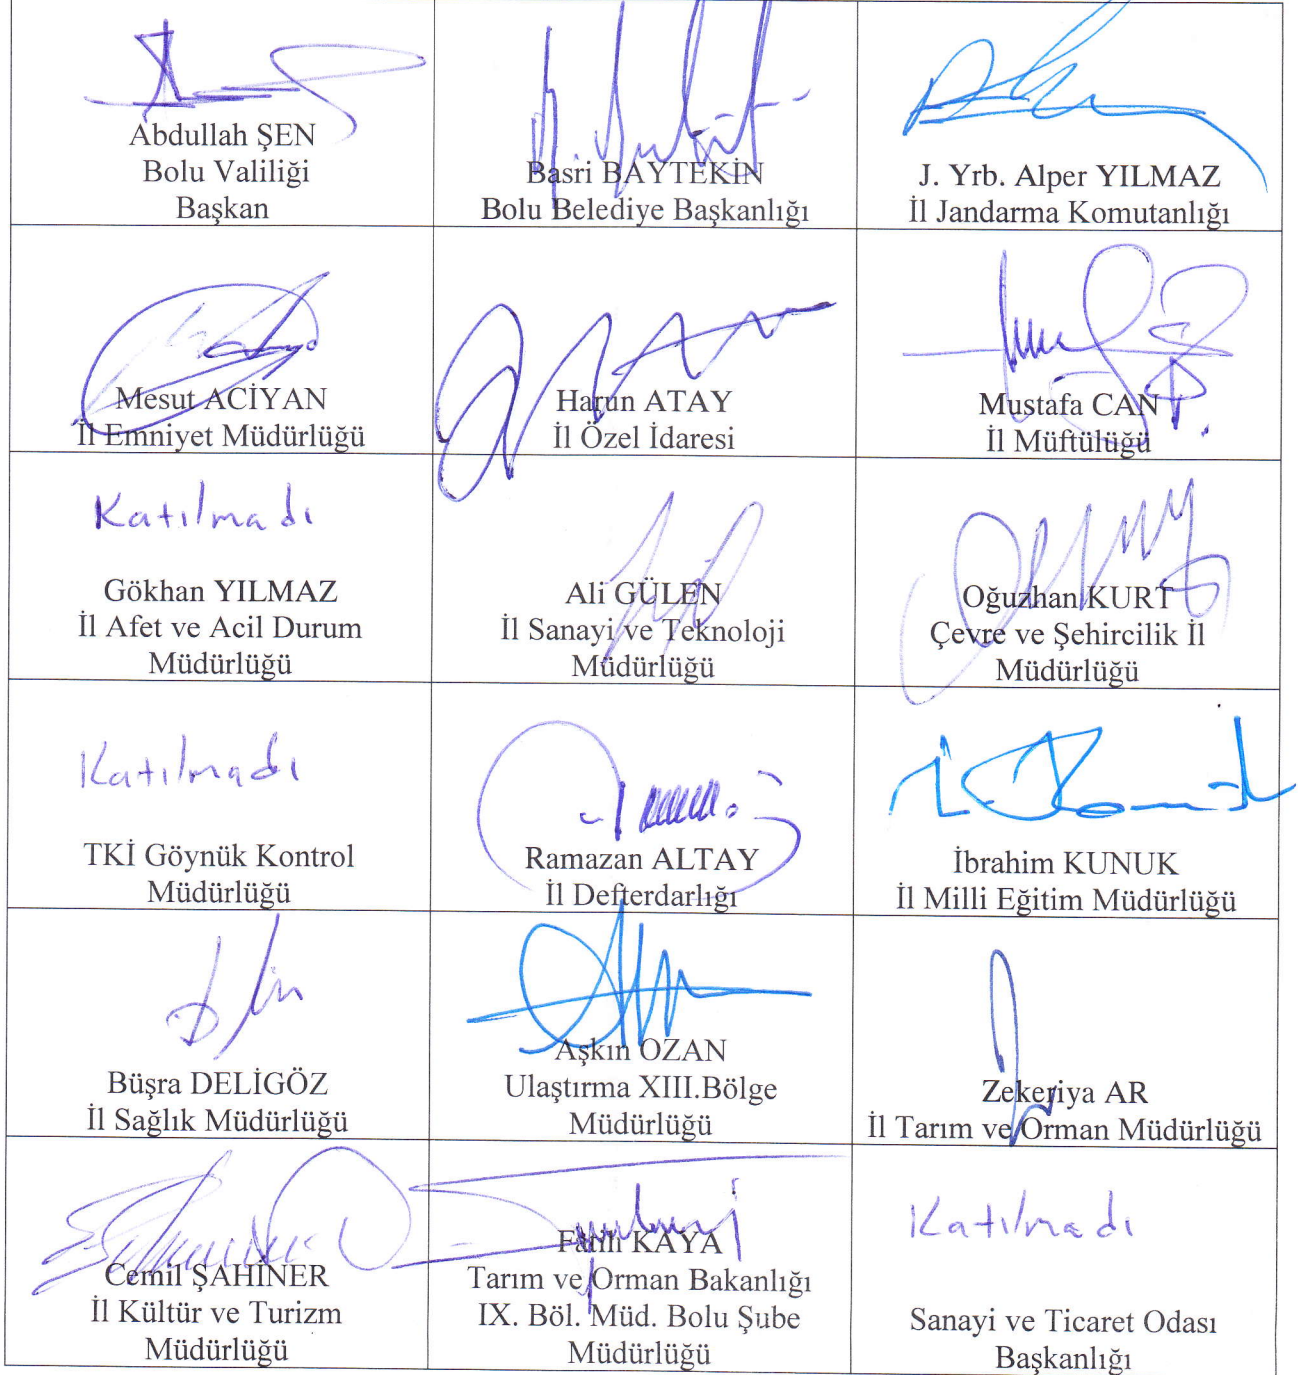 Abdullah ŞEN
Bolu Valiliği
Başkan
Basri BAYTEKİN
Bolu Belediye Başkanlığı
J. Yrb. Alper YILMAZ
İl Jandarma Komutanlığı
Mesut ACİYAN
İl Emniyet Müdürlüğü
Harun ATAY
İl Özel İdaresi
Mustafa CAN
İl Müftülüğü
Katılmadı
Gökhan YILMAZ
İl Afet ve Acil Durum
Müdürlüğü
Ali GÜLEN
İl Sanayi ve Teknoloji
Müdürlüğü
Oğuzhan KURT
Çevre ve Şehircilik İl
Müdürlüğü
Katılmadı
TKİ Göynük Kontrol
Müdürlüğü
Ramazan ALTAY
İl Defterdarlığı
İbrahim KUNUK
İl Milli Eğitim Müdürlüğü
Büşra DELİGÖZ
İl Sağlık Müdürlüğü
Aşkın OZAN
Ulaştırma XIII.Bölge
Müdürlüğü
Zekeriya AR
İl Tarım ve Orman Müdürlüğü
Cemil ŞAHİNER
İl Kültür ve Turizm
Müdürlüğü
Fatih KAYA
Tarım ve Orman Bakanlığı
IX. Böl. Müd. Bolu Şube
Müdürlüğü
Katılmadı
Sanayi ve Ticaret Odası
Başkanlığı